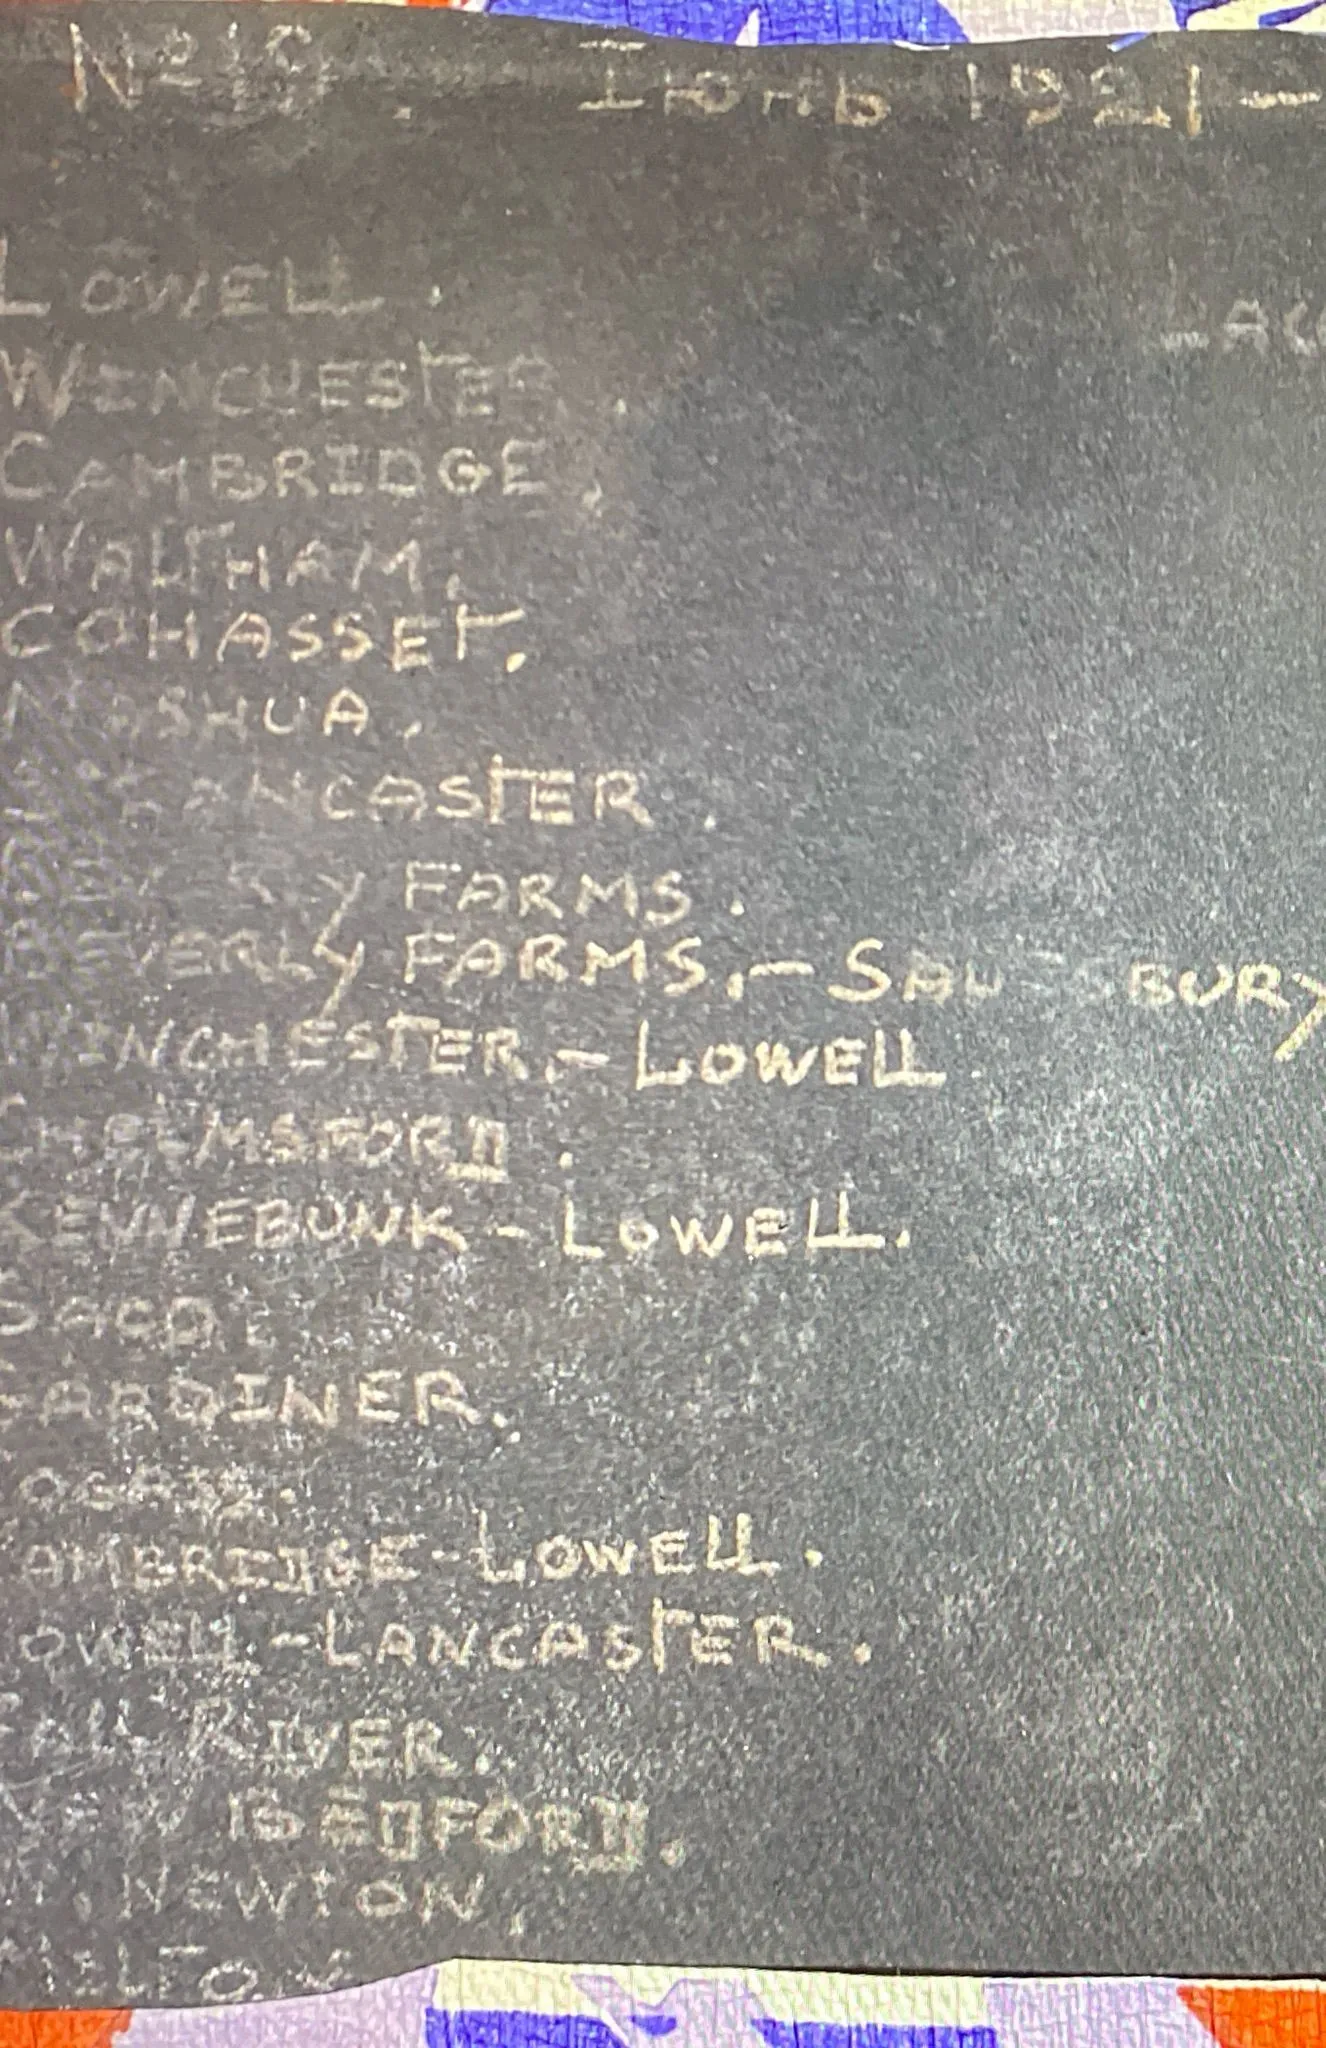 Іюнь 1921 -
LOWELL.
WINCHESTER.
CAMBRIDGE.
WALTHAM.
COHASSET.
NASHUA.
LANCASTER.
BEVERLY FARMS.
BEVERLY FARMS. - SALISBURY
WINCHESTER. - LOWELL
CHELMSFORD.
KENNEBUNK - LOWELL.
SACO.
GARDINER.
CAMBRIDGE - LOWELL.
LOWELL - LANCASTER.
FALL RIVER.
NEW BEDFORD.
NEWTON.
MILTON